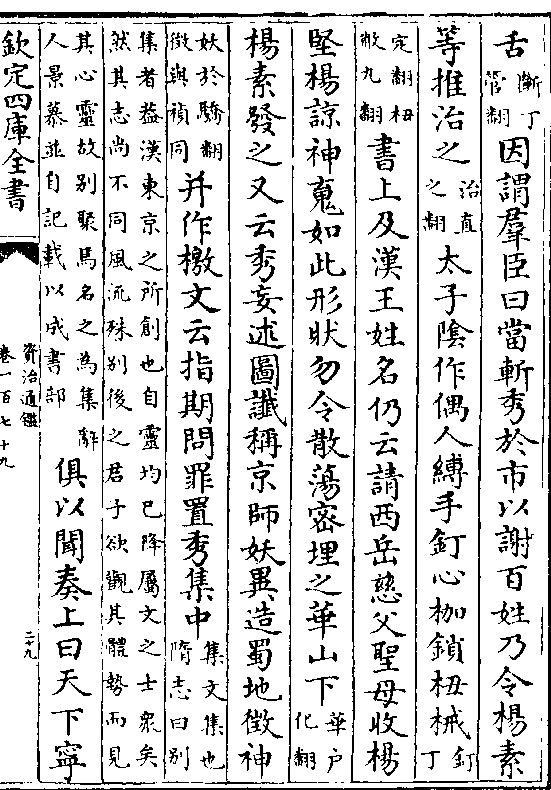 舌斷丁管翻因謂羣臣曰當斬秀於市以謝百姓乃令楊素
等推治之治直之翻太子陰作偶人縛手釘心枷鎖杻械釘丁
定翻杻敕九翻書上及漢王姓名仍云請西岳慈父聖母收楊
堅楊諒神䰟如此形狀勿令散蕩密埋之華山下華戶化翻
楊素發之又云秀妄述圖讖稱京師妖異造蜀地徵神
妖於驕翻徵與禎同并作檄文云指期問罪置秀集中集文集也隋志曰別
集者葢漢東京之所創也自靈均已降屬文之士衆矣
然其志尚不同風流殊別後之君子欲觀其體勢而見
其心靈故別聚焉名之為集辭人景慕並自記載以成書部俱以聞奏上曰天下寧
欽定四庫全書
資治通鑑
卷一百七十九
二九